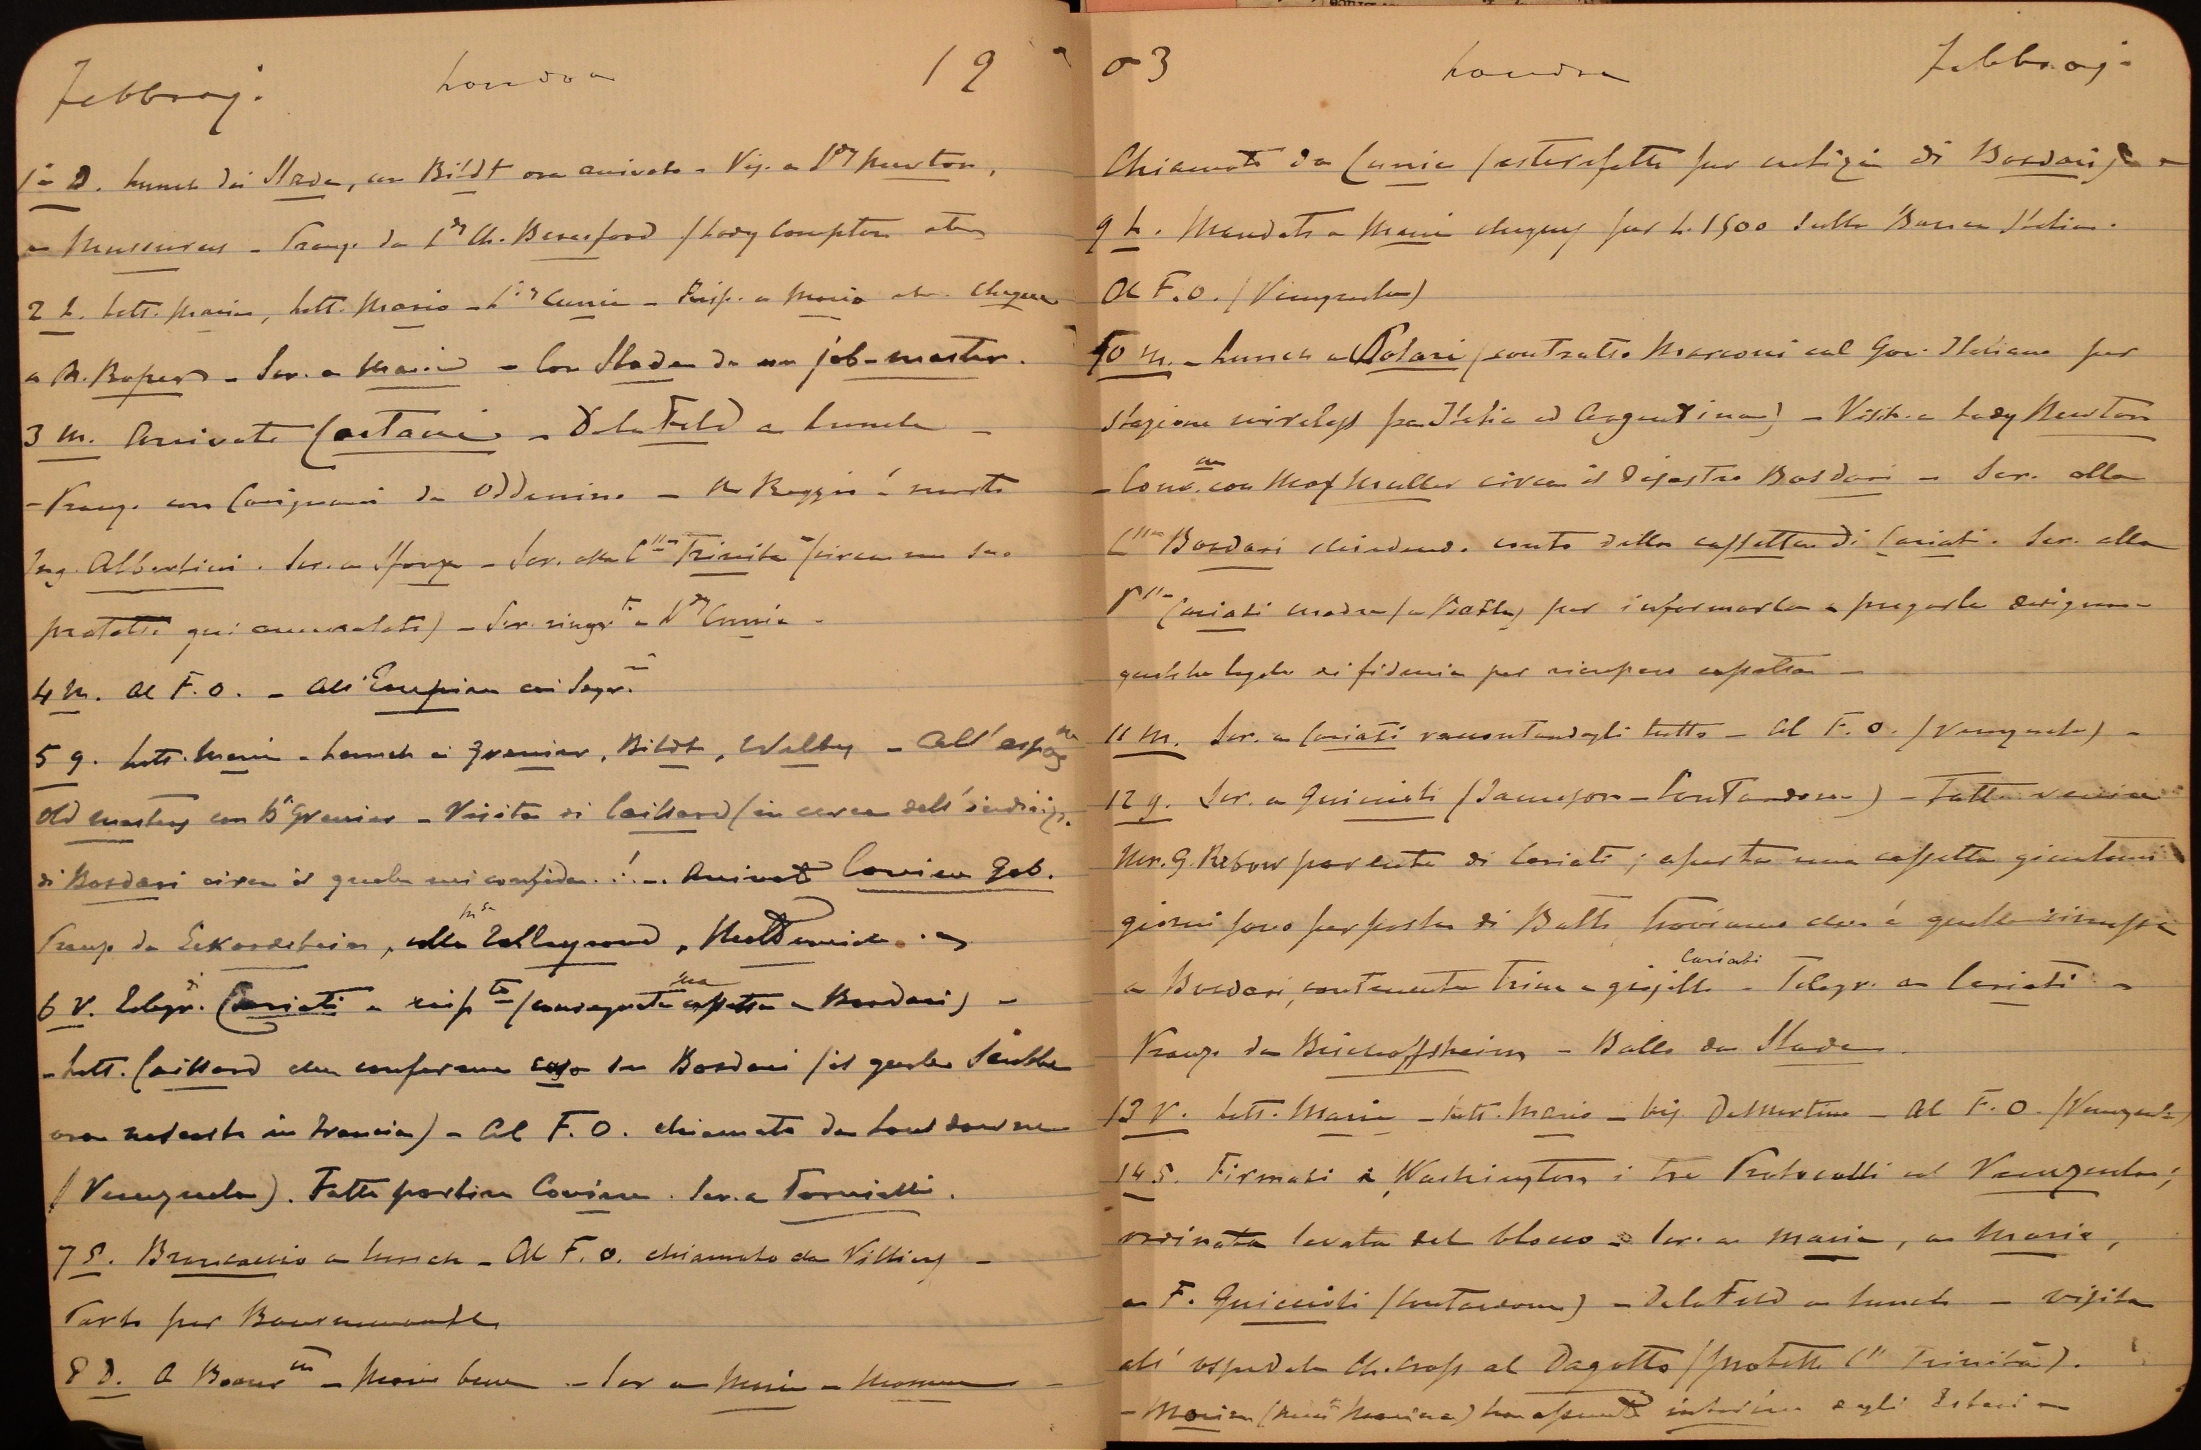 Febbraj. Londra 19
1° D. Lunch dai Slade, con Bildt ora arrivato - Vis. a Ldy Newton,
a Musurus - Pranzo da Ld Ch. Beresford (Lady Compton etc
2 L. Lett. Maria, Lett. Mario - Ldy Currie - Risp. a Mario etc. cheque
a R. Roper - Scr. a Maria - Con Slade da un job-master.
3 M. Arrivato Caetani - DelaFeld a lunch -
- Pranzo con Carignani da Oddenino - A Reggio è morto
Ing. Albertini. Scr. a Sforza - Scr. alla Cssa Trinità (circa un suo
protetto qui ammalato) - Scr. ringr.to a Ldy Currie -
4 M. Al F.O. - All'Empire coi Segr.ri
5 G. Lett. Maria - Lunch i Grenier, Bildt, Welby - All'espos.ne
Old masters con Bn Grenier - Visita di Caillard (in cerca dell'indirizzo
di Bosdari circa il quale mi confida..! - Arrivato Corriere Gab.
Pranzo da Eckardstein, colla Msa Talleyrand, Metternich
6 V. Telegr. di Cariati e risp.ta (consegnata una cassetta a Bosdari) -
- Lett. Caillard che conferma cosa su Bosdari (il quale sarebbe
ora nascosto in Francia) - Al F.O. chiamato da Lansdowne
(Venezuela). Fatto partire Corriere. Scr. a Tornielli.
7 S. Brancaccio a lunch - Al F.O. chiamato da Villiers -
Parto per Bournemouth
8 D. A Bourn.th - Maria bene - Scr a Maria a Mamma -
03 Londra Febbraj.
Chiamato da Currie (esterefatto per notizia di Bosdari)
9 L. Mandato a Maria cheques per L. 1500 sulla Banca d'Italia.
Al F.O. (Venezuela)
10 M. - Lunch a Solari (contratto Marconi col Gov. Italiano per
stazione wireless fra Italia ed Argentina) - Visit. a Lady Newton
- Conv.ne con Max Muller circa il disastro Bosdari - Scr. alla
Cssa Bosdari chiedendo conto della cassetta di Cariati. Scr. alla
Pssa Cariati madre (a Bath) per informarla e pregarla designare
qualche legale di fiducia per ricupero cassetta -
11 M. Scr. a Cariati raccontandogli tutto - Al F.O. (Venezuela) -
12 G. Scr. a Guiccioli (Jameson - Contandone) - Fatto venire
Mr. G. Rebow parente di Cariati; aperta una cassetta giuntami
giorni sono per posta di Bath troviamo che è quella rimessa
a Bosdari, contenente trine e gioielli Cariati - Telegr. a Cariati -
Pranzo da Bischoffsheim - Ballo da Slade.
13 V. Lett. Maria - Lett. Mario - Vis. DeMartino - Al F.O. (Venezuela)
14 S. Firmati a Washington i tre Protocolli col Venezuela;
ordinata levata del blocco - Scr. a Maria, a Mario,
a F. Guiccioli (Contandone) - DelaFeld a lunch - visita
all'ospedale Ch. Cross al Dagotto (protetto Cssa Trinità).
- Morin (Min. Marina) ha assunto interim degli Esteri -